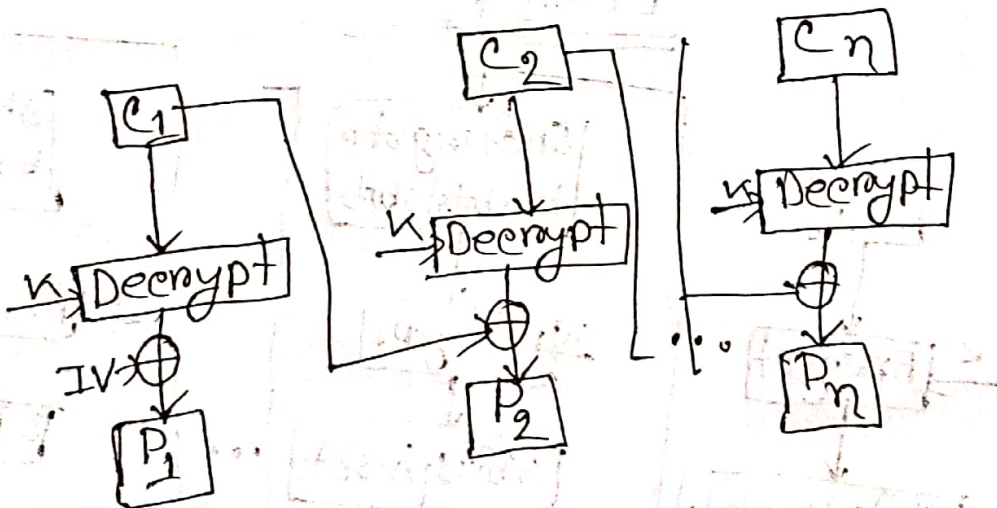 C1
K Decrypt
IV
P1
C2
K Decrypt
P2
...
Cn
K Decrypt
Pn